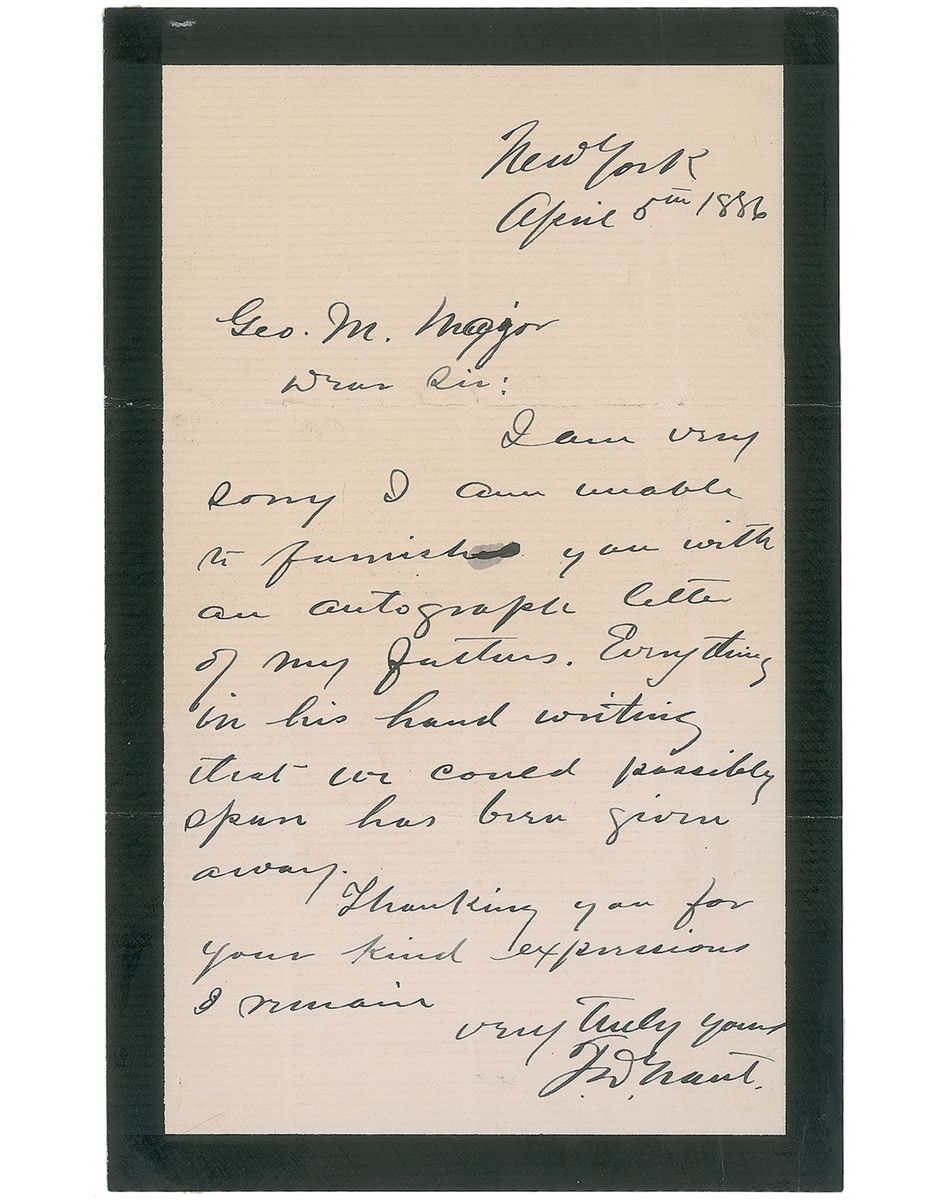 New York
April 5th 1886
Geo. M. Major
Dear Sir:
I am very
sorry I am unable
to furnish you with
an autograph letter
of my fathers. Everything
in his hand writing
that we could possibly
spare has been given
away.
Thanking you for
your kind expressions
I remain
very truly yours
F. D. Grant.